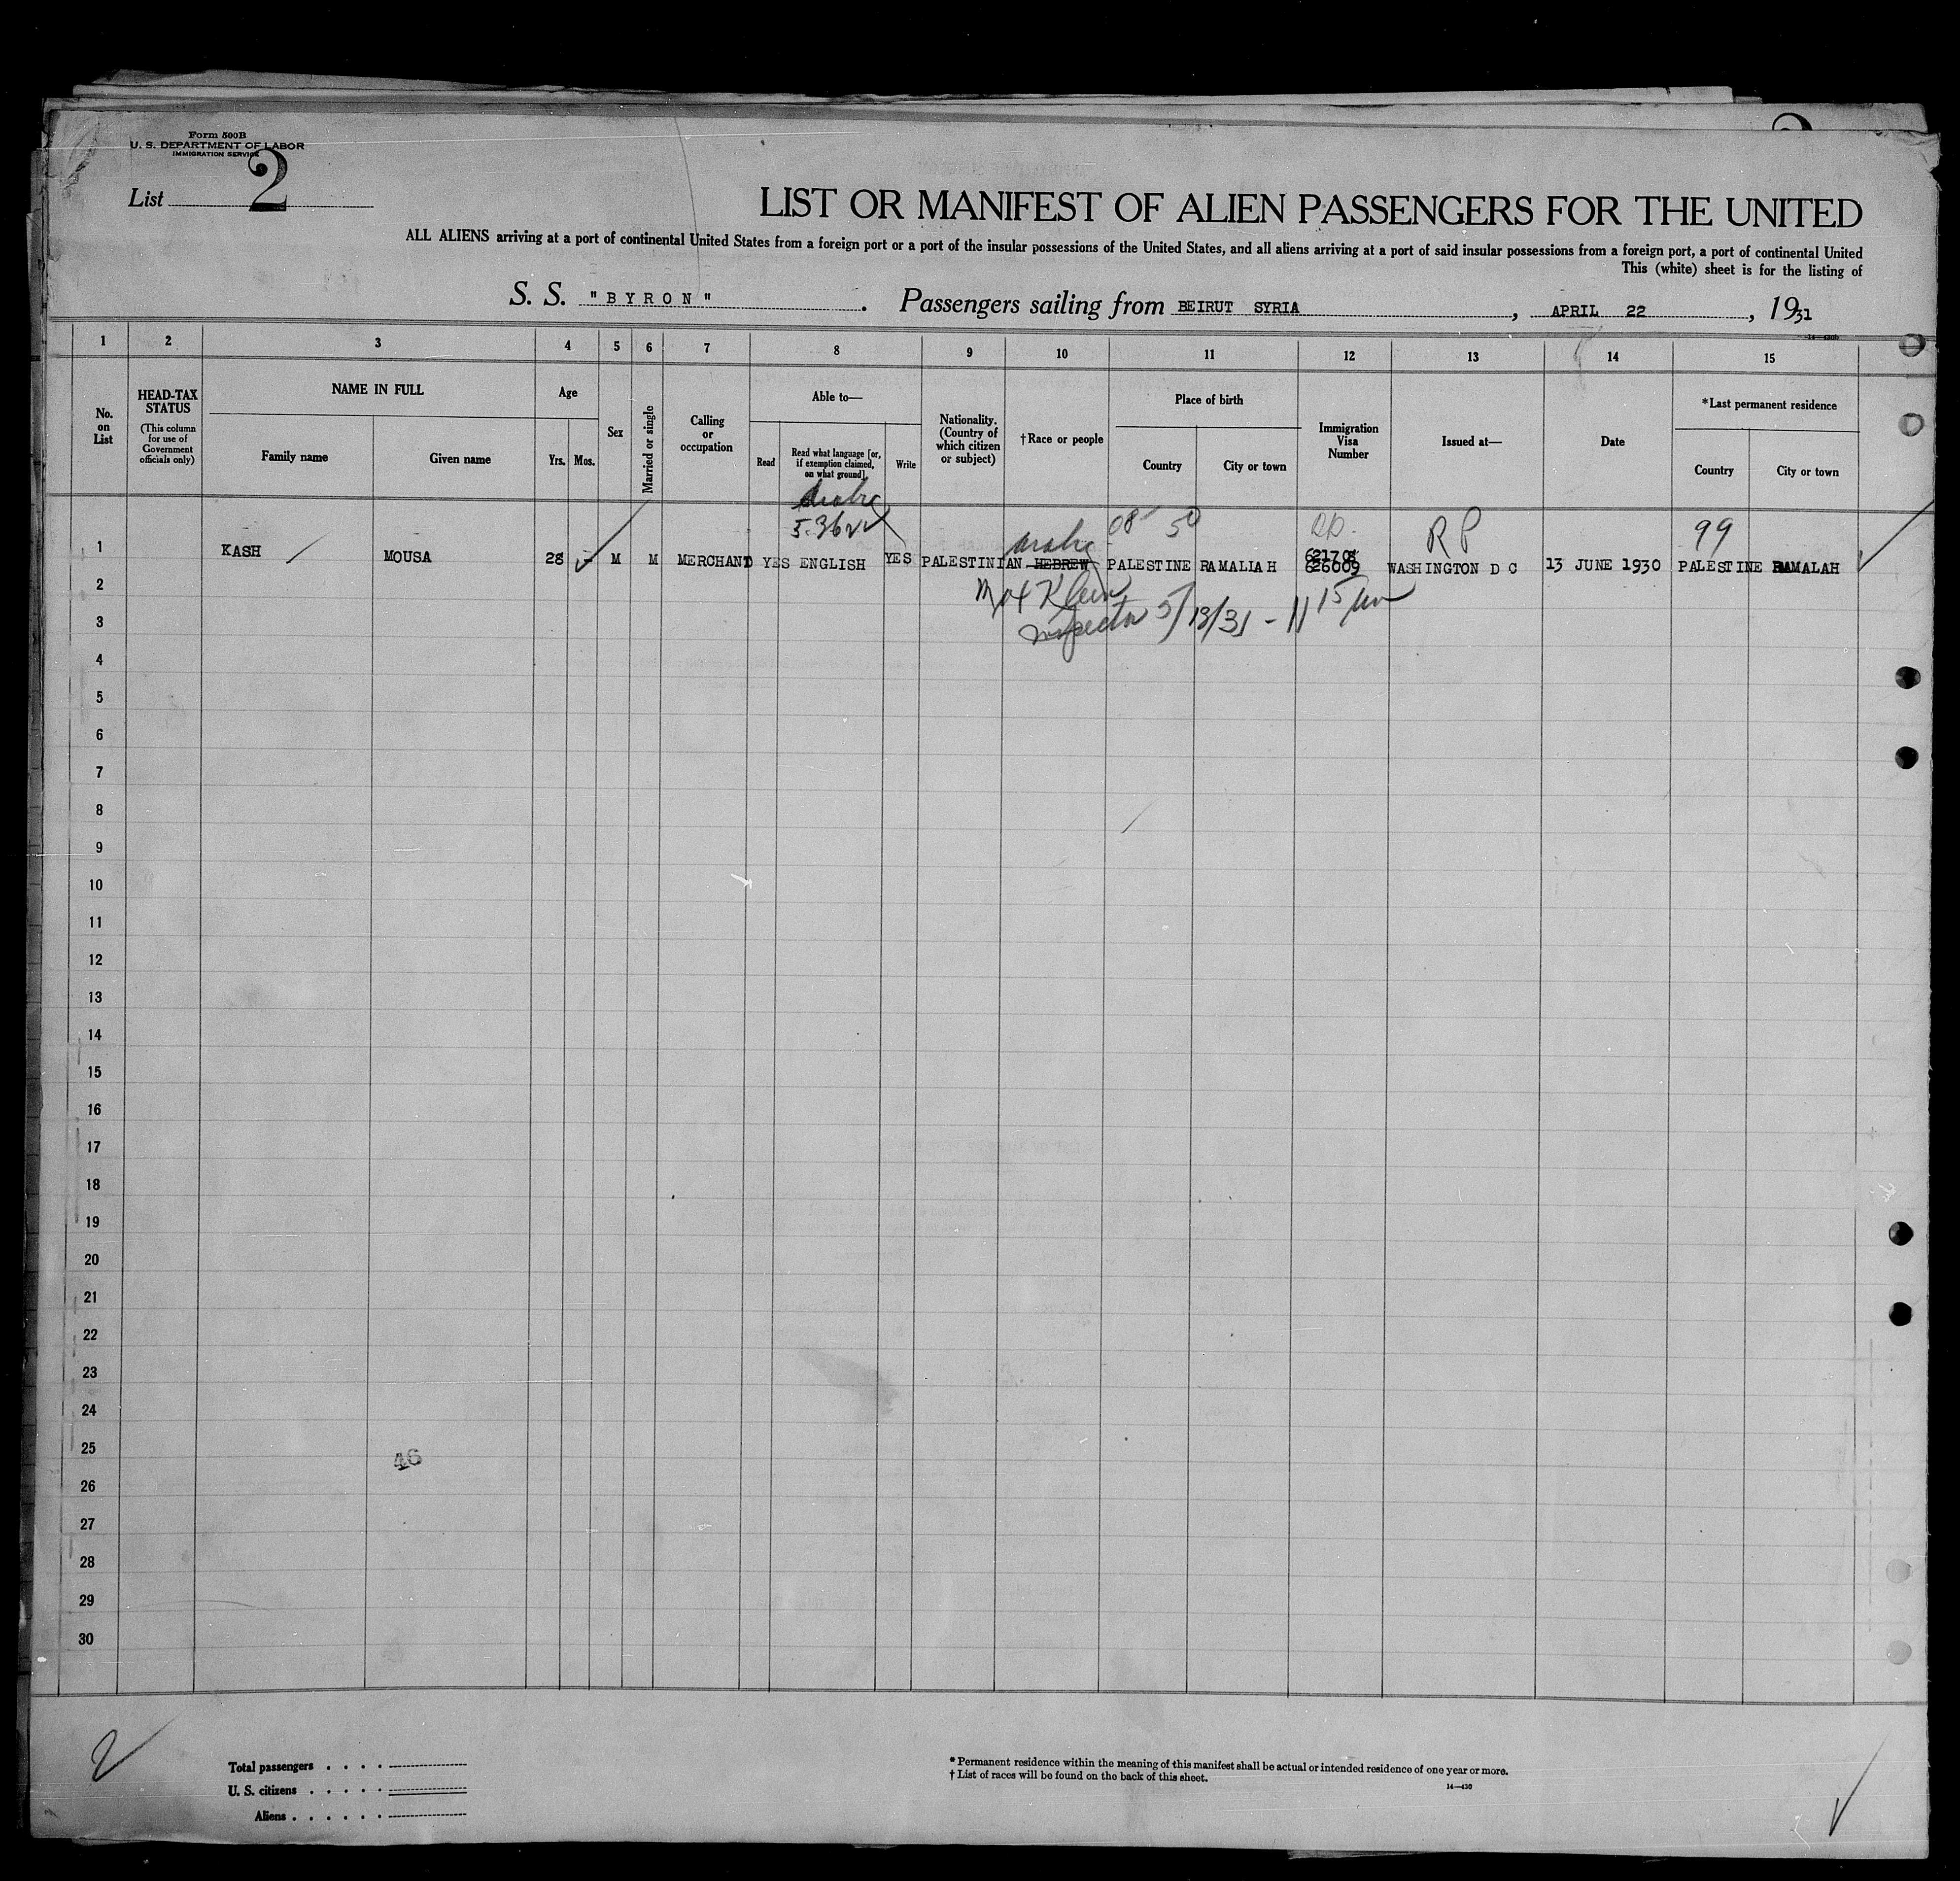 Form 500B
U. S. DEPARTMENT OF LABOR
IMMIGRATION SERVICE
List 2
LIST OR MANIFEST OF ALIEN PASSENGERS FOR THE UNITED
ALL ALIENS arriving at a port of continental United States from a foreign port or a port of the insular possessions of the United States, and all aliens arriving at a port of said insular possessions from a foreign port, a port of continental United
This (white) sheet is for the listing of
S. S. "BYRON". Passengers sailing from BEIRUT SYRIA, APRIL 22, 1931
1 2 3 4 5 6 7 8 9 10 11 12 13 14 15
No. on List
HEAD-TAX STATUS
(This column for use of Government officials only)
NAME IN FULL
Family name
Given name
Age
Yrs. Mos.
Sex
Married or single
Calling or occupation
Able to—
Read
Read what language [or, if exemption claimed, on what ground]
Write
Nationality. (Country of which citizen or subject)
†Race or people
Place of birth
Country
City or town
Immigration Visa Number
Issued at—
Date
*Last permanent residence
Country
City or town
Arabic
08 50 RP 99
Arabic
62170
1 KASH MOUSA 28 M M MERCHAND YES ENGLISH YES PALESTINIAN HEBREW PALESTINE RAMALIAH 626009 WASHINGTON D C 13 JUNE 1930 PALESTINE RAMALAH
2
Klein
3
inspector 5/13/31 - 11 15
4
5
6
7
8
9
10
11
12
13
14
15
16
17
18
19
20
21
22
23
24
25
46
26
27
28
29
30
2
Total passengers
U. S. citizens
Aliens
* Permanent residence within the meaning of this manifest shall be actual or intended residence of one year or more.
† List of races will be found on the back of this sheet.
14—430